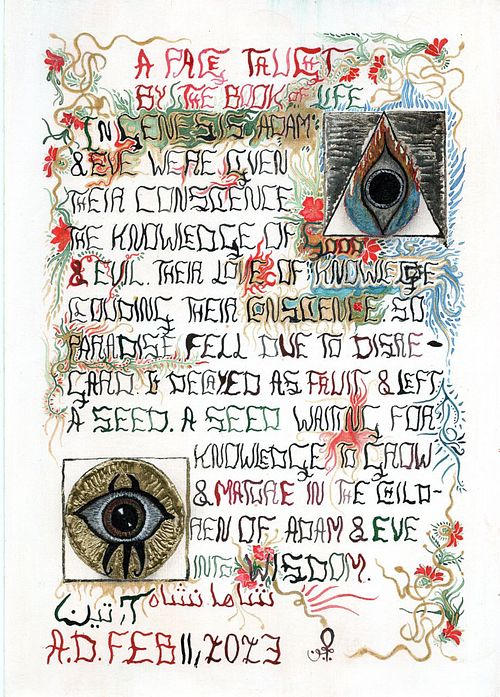 A TALE TAUGHT
BY THE BOOK OF LIFE
IN GENESIS IS ADAM
& EVE WERE GIVEN
THEIR CONSCIENCE
THE KNOWLEDGE OF GOOD
& EVIL. THEIR LOVE OF KNOWLEDGE
CLOUDING THEIR CONSCIENCE. SO
PARADISE FELL DUE TO DISRE-
GARD. & DECAYED AS FRUIT & LEFT
A SEED. A SEED WAITING FOR
KNOWLEDGE TO GROW
& MATURE IN THE CHILD-
REN OF ADAM & EVE
INTO WISDOM.
A.D. FEB 11, 2023